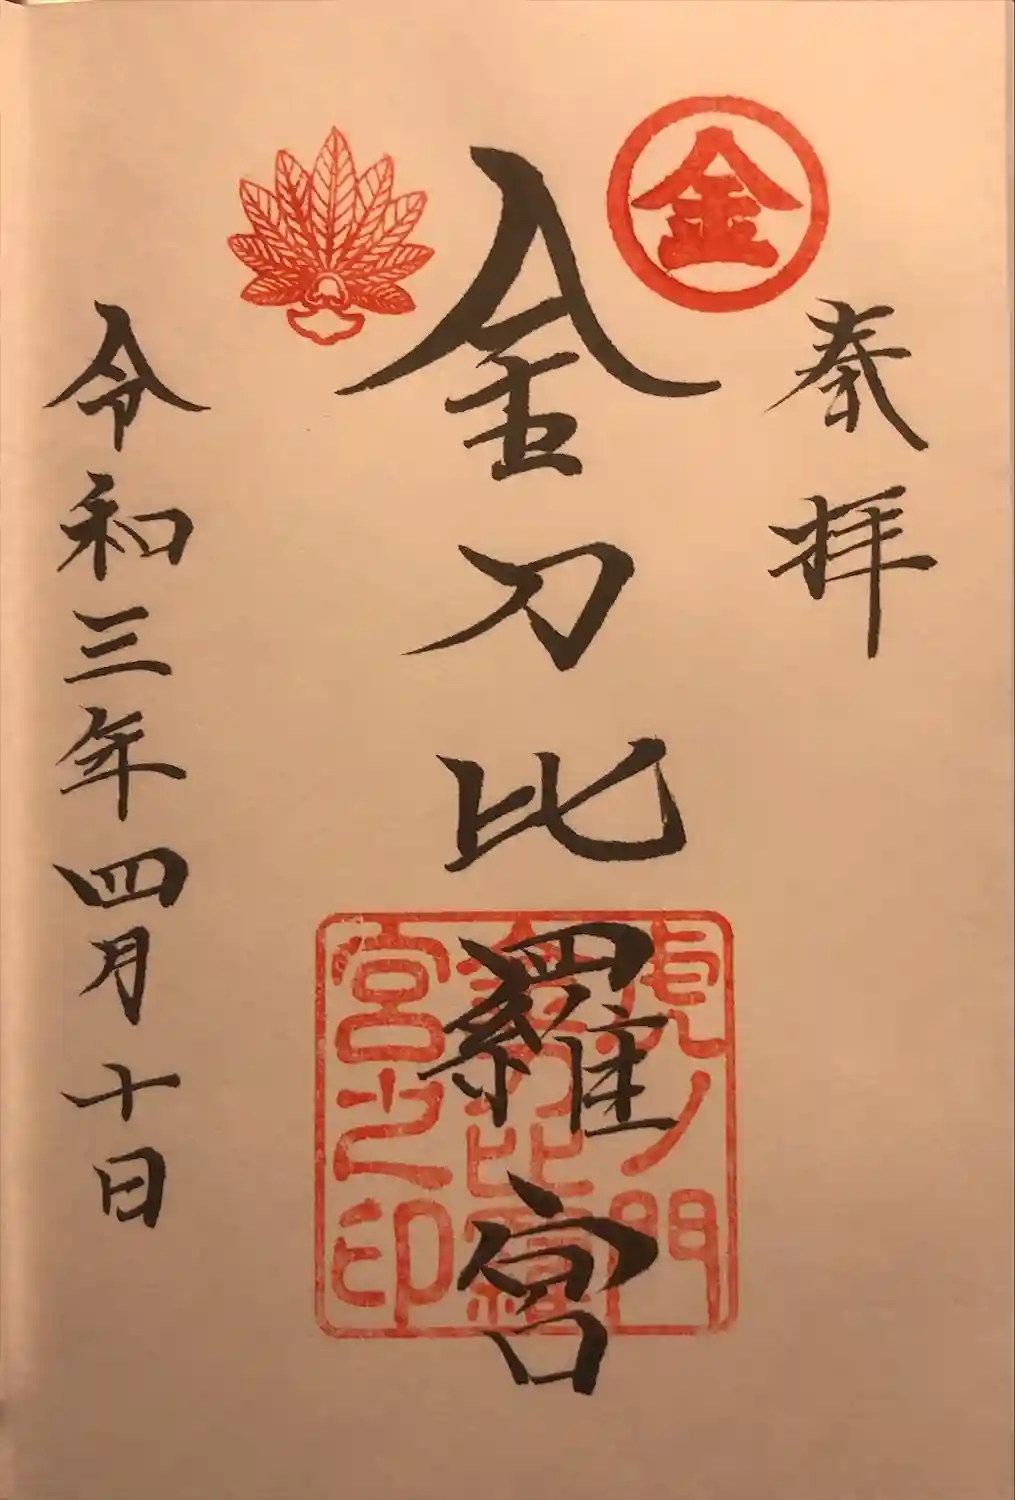 奉拝
金
金刀比羅宮
虎ノ門
金刀比羅
宮之印
令和三年四月十日